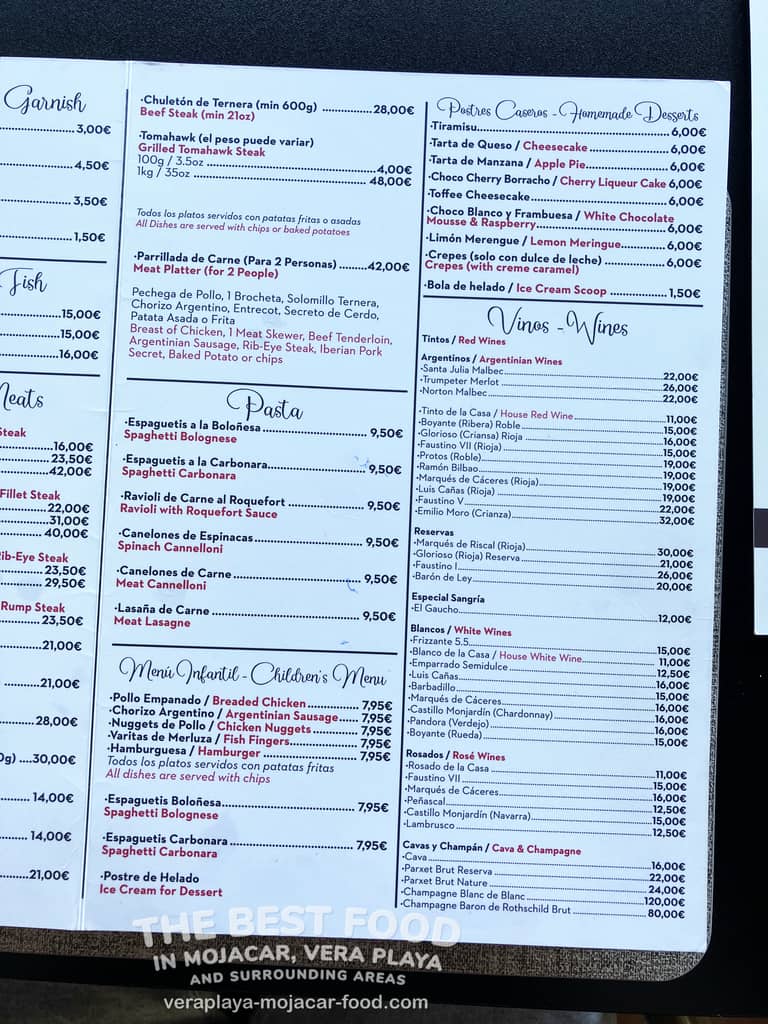 Garnish
3,00€
4,50€
3,50€
1,50€
Fish
15,00€
15,00€
16,00€
Meats
Steak
16,00€
23,50€
42,00€
Fillet Steak
22,00€
31,00€
40,00€
Rib-Eye Steak
23,50€
29,50€
Rump Steak
23,50€
21,00€
21,00€
28,00€
0g) ....30,00€
14,00€
14,00€
21,00€
·Chuletón de Ternera (min 600g) ..................28,00€
Beef Steak (min 21oz)
·Tomahawk (el peso puede variar)
Grilled Tomahawk Steak
100g / 3.5oz ..................4,00€
1kg / 35oz ..................48,00€
Todos los platos servidos con patatas fritas o asadas
All Dishes are served with chips or baked potatoes
·Parrillada de Carne (Para 2 Personas) .........42,00€
Meat Platter (for 2 People)
Pechega de Pollo, 1 Brocheta, Solomillo Ternera,
Chorizo Argentino, Entrecot, Secreto de Cerdo,
Patata Asada o Frita
Breast of Chicken, 1 Meat Skewer, Beef Tenderloin,
Argentinian Sausage, Rib-Eye Steak, Iberian Pork
Secret, Baked Potato or chips
Pasta
·Espaguetis a la Boloñesa .................. 9,50€
Spaghetti Bolognese
·Espaguetis a la Carbonara.................. 9,50€
Spaghetti Carbonara
·Ravioli de Carne al Roquefort .................. 9,50€
Ravioli with Roquefort Sauce
·Canelones de Espinacas .................. 9,50€
Spinach Cannelloni
·Canelones de Carne .................. 9,50€
Meat Cannelloni
·Lasaña de Carne .................. 9,50€
Meat Lasagne
Menú Infantil - Children's Menu
·Pollo Empanado / Breaded Chicken .............. 7,95€
·Chorizo Argentino / Argentinian Sausage..... 7,95€
·Nuggets de Pollo / Chicken Nuggets ............ 7,95€
·Varitas de Merluza / Fish Fingers.................. 7,95€
·Hamburguesa / Hamburger .................. 7,95€
Todos los platos servidos con patatas fritas
All dishes are served with chips
·Espaguetis Boloñesa.................. 7,95€
Spaghetti Bolognese
·Espaguetis Carbonara .................. 7,95€
Spaghetti Carbonara
·Postre de Helado
Ice Cream for Dessert
Postres Caseros - Homemade Desserts
·Tiramisu.................. 6,00€
·Tarta de Queso / Cheesecake .................. 6,00€
·Tarta de Manzana / Apple Pie.................. 6,00€
·Choco Cherry Borracho / Cherry Liqueur Cake 6,00€
·Toffee Cheesecake.................. 6,00€
·Choco Blanco y Frambuesa / White Chocolate
Mousse & Raspberry.................. 6,00€
·Limón Merengue / Lemon Meringue............ 6,00€
·Crepes (solo con dulce de leche) .................. 6,00€
Crepes (with creme caramel)
·Bola de helado / Ice Cream Scoop .................. 1,50€
Vinos - Wines
Tintos / Red Wines
Argentinos / Argentinian Wines
·Santa Julia Malbec..................22,00€
·Trumpeter Merlot ..................26,00€
·Norton Malbec..................22,00€
·Tinto de la Casa / House Red Wine..................11,00€
·Boyante (Ribera) Roble..................15,00€
·Glorioso (Criansa) Rioja ..................16,00€
·Faustino VII (Rioja)..................15,00€
·Protos (Roble)..................19,00€
·Ramón Bilbao..................19,00€
·Marqués de Cáceres (Rioja)..................19,00€
·Luis Cañas (Rioja) ..................19,00€
·Faustino V..................22,00€
·Emilio Moro (Crianza)..................32,00€
Reservas
·Marqués de Riscal (Rioja)..................30,00€
·Glorioso (Rioja) Reserva ..................21,00€
·Faustino I..................26,00€
·Barón de Ley..................20,00€
Especial Sangría
·El Gaucho..................12,00€
Blancos / White Wines
·Frizzante 5.5..................15,00€
·Blanco de la Casa / House White Wine.................. 11,00€
·Emparrado Semidulce ..................12,50€
·Luis Cañas..................16,00€
·Barbadillo..................15,00€
·Marqués de Cáceres..................16,00€
·Castillo Monjardín (Chardonnay)..................16,00€
·Pandora (Verdejo)..................16,00€
·Boyante (Rueda)..................15,00€
Rosados / Rosé Wines
·Rosado de la Casa ..................11,00€
·Faustino VII ..................15,00€
·Marqués de Cáceres..................16,00€
·Peñascal..................12,50€
·Castillo Monjardín (Navarra)..................15,00€
·Lambrusco..................12,50€
Cavas y Champán / Cava & Champagne
·Cava..................16,00€
·Parxet Brut Reserva ..................22,00€
·Parxet Brut Nature ..................24,00€
·Champagne Blanc de Blanc..................120,00€
·Champagne Baron de Rothschild Brut ..................80,00€
THE BEST FOOD
IN MOJACAR, VERA PLAYA
AND SURROUNDING AREAS
veraplaya-mojacar-food.com